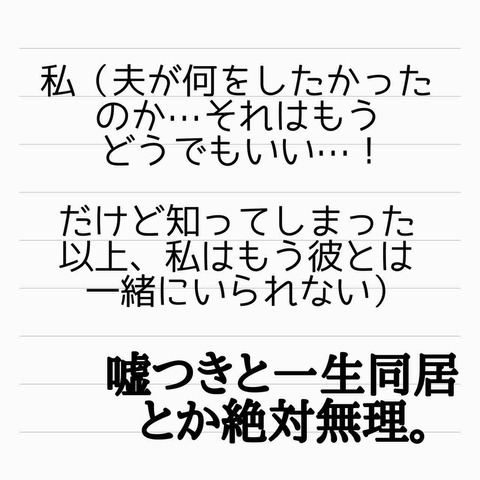 私（夫が何をしたかった
のか…それはもう
どうでもいい…！
だけど知ってしまった
以上、私はもう彼とは
一緒にいられない）
嘘つきと一生同居
とか絶対無理。